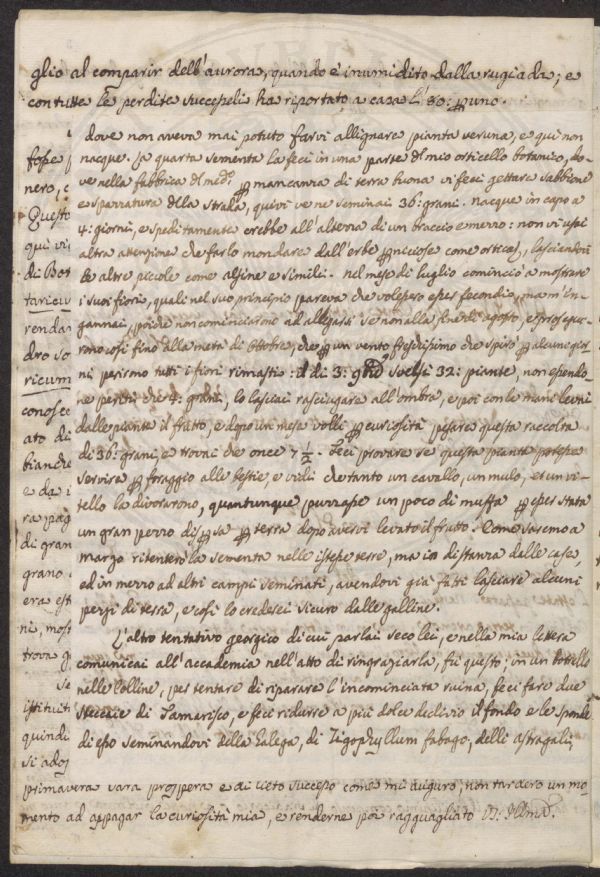 glio al comparir dell'aurora, quando è inumidito dalla rugiada; e
con tutte le perdite successeli ha riportato a casa l'30: p uno.
dove non aveva mai potuto farvi allignare pianta veruna, e qui non
nacque. La quarta sementa la feci in una parte del mio orticello botanico, do-
ve nella fabbrica del med.º p mancanza di terra buona vi feci gettare sabbione
e spazzatura della strada, quivi ve ne seminai 36: grani. nacque in capo a
4: giorni, e speditamente crebbe all'altezza di un braccio e mezzo: non vi usai
altra attenzione che farlo mondare dall'erbe pniciose come ortica, lasciandovi
le altre piccole come alsine e simili. nel mese di luglio cominciò a mostrare
i suoi fiori, quali nel suo principio pareva che volessero esser fecondi, ma m'in-
gannai, poiché non cominciarono ad allegarsi se non alla fine di agosto, e prosegui-
rono così fino alla metà di Ottobre, che p un vento freddissimo che spirò p alcuni gior-
ni perirono tutti i fiori rimasti: il dì 3: 9bre svelsi 32: piante, non essendo-
ne periti che 4: grani, lo lasciai rasciugare all'ombra, e poi con le mani levai
dalle piante il frutto, e dopo un mese volli p curiosità pesare questa raccolta
di 36: grani, e trovai che once 7 1/2. Feci provare se questa pianta potesse
servire p foraggio alle bestie, e vidi che tanto un cavallo, un mulo, et un vi-
tello la divorarono, quantunque puzzasse un poco di muffa p esser stata
un gran pezzo dispsa p terra dopo avervi levato il frutto. Come saremo a
marzo ritenterò la sementa nelle istesse terre, ma in distanza dalle case,
ed in mezzo ad altri campi seminati, avendovi già fatti lasciare alcuni
pezzi di terra, e così lo crederei sicuro dalle galline.
L'altro tentativo georgico di cui parlai seco lei, e nella mia lettera
comunicai all'accademia nell'atto di ringraziarla, fù questo: in un botrello
nelle Colline, per tentare di riparare l'incominciata ruina, feci fare due
steccaie di Tamarisco, e feci ridurre a più dolce declivio il fondo e le sponde
di esso seminandovi della Galega, di Zigophyllum fabago, delli astragali,
fosse
nero,
Questo
qui vi
di Bot
taricu
renda
dro so
ricum
conosce
ato di
bianche
e da
ra pag
di gran
grano
era est
ni, most
trova
Se
istituit
quindi
si adop
primavera sara prospera e di lieto successo come mi auguro, non tarderò un mo
mento ad appagar la curiosità mia, e renderne poi ragguagliato V.S. Illma.